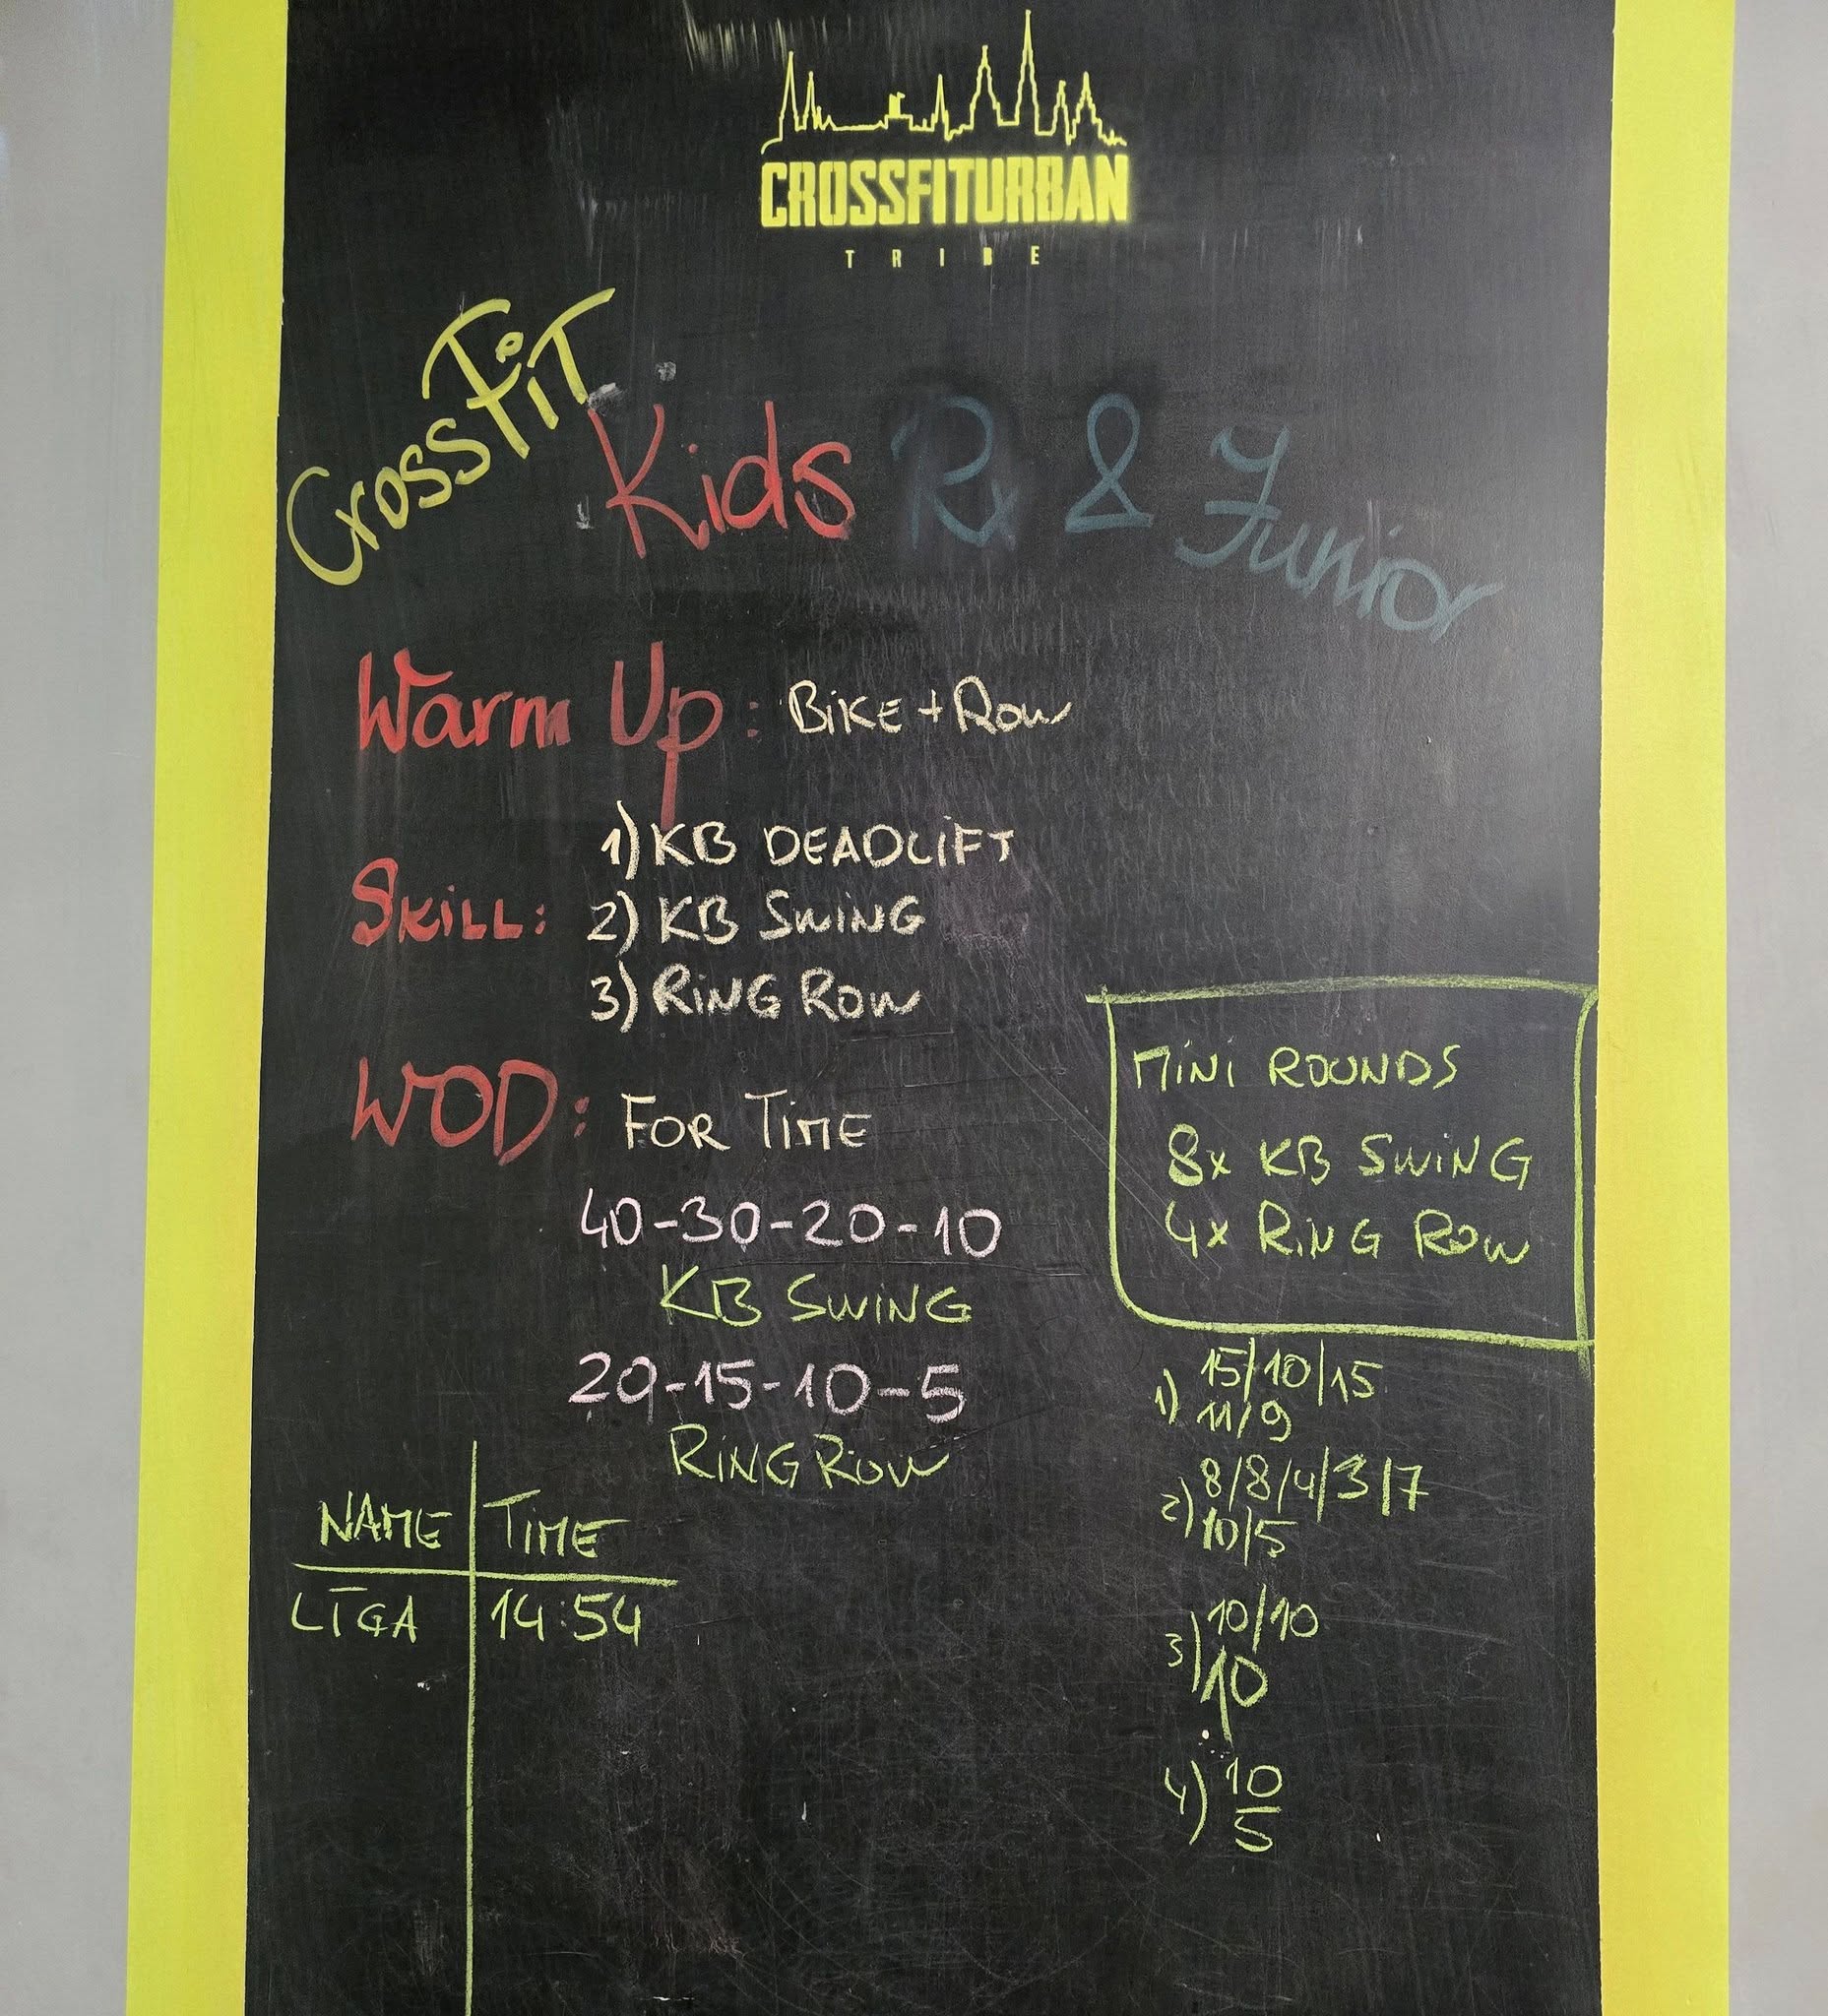 CROSSFITURBAN
TRIBE
CrossFiT Kids Rx & Junior
Warm Up: BiKE + Row
SKiLL: 1) KB DEADLiFT
2) KB SWiNG
3) RiNG ROW
WOD: FOR TiME
40-30-20-10
KB SWiNG
20-15-10-5
RiNG ROW
NAME TiME
LĪGA 14:54
MiNi ROUNDS
8x KB SWiNG
4x RiNG ROW
1) 15/10/15
11/9
2) 8/8/4/3/7
10/5
3) 10/10
10
4) 10
5